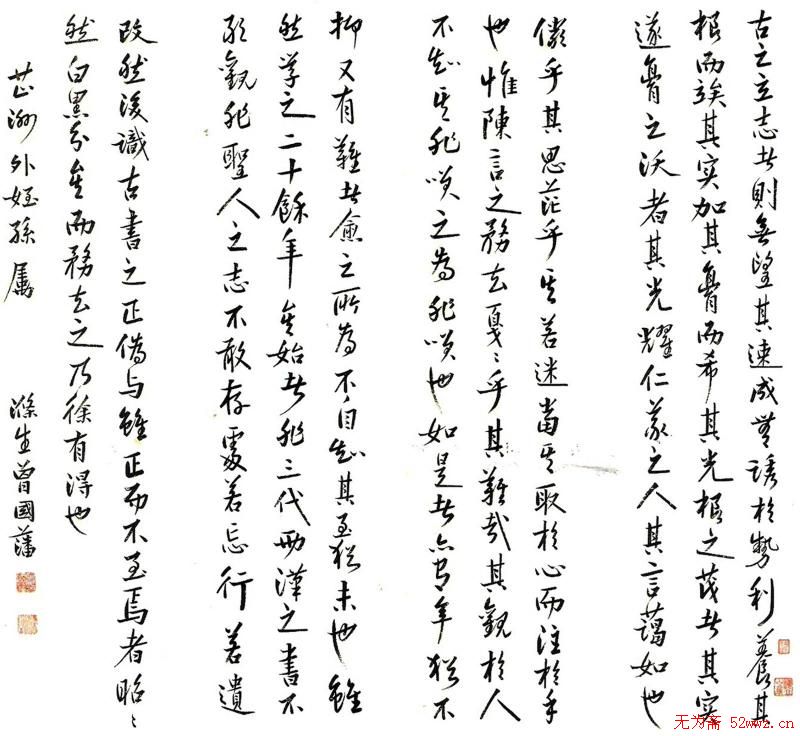 古之立志者則無望其速成無誘於勢利養其
根而竢其實加其膏而希其光根之茂者其實
遂膏之沃者其光耀仁義之人其言藹如也
儼乎其思茫乎其若迷當其取於心而注於手
也惟陳言之務去戛〻乎其難哉其觀於人
不知其非咲之為非咲也如是者亦有年猶不
抑又有難者愈之所為不自知其至猶未也雖
然學之二十餘年矣始者非三代兩漢之書不
敢觀非聖人之志不敢存處若忘行若遺
改然後識古書之正偽與雖正而不至焉者昭〻
然白黑分矣而務去之乃徐有得也
芷洲外姪孫屬 滌生曾國藩
无为斋 52wwz.cn